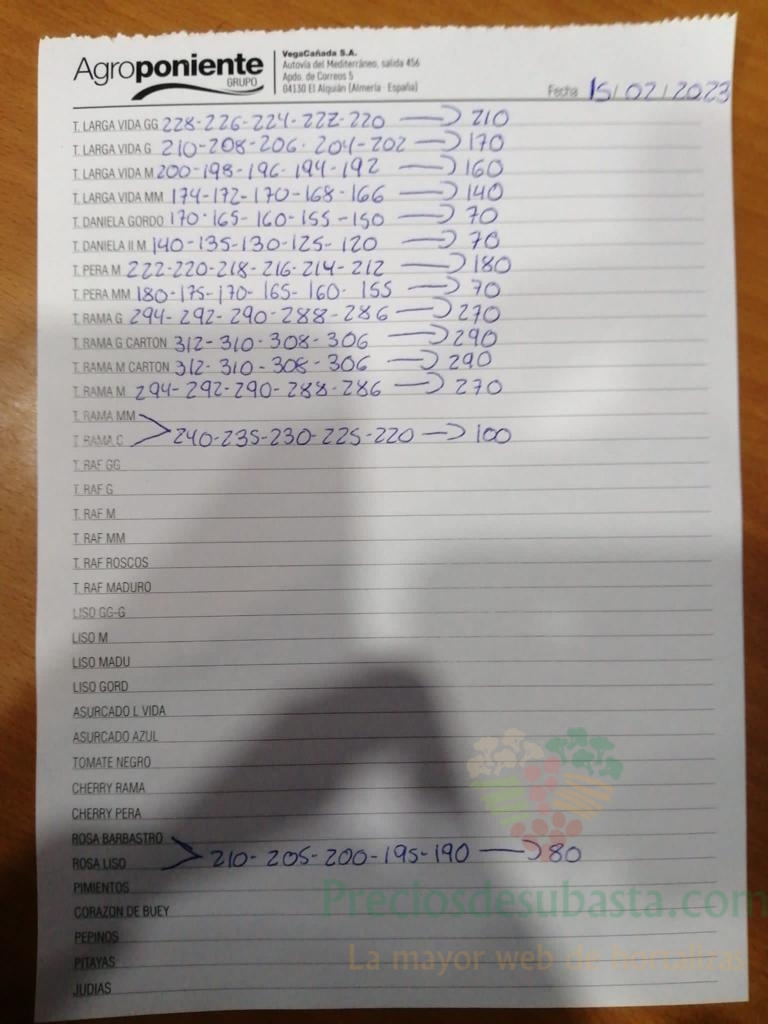 Agroponiente
GRUPO
VegaCañada S.A.
Autovía del Mediterráneo, salida 456
Apdo. de Correos 5
04130 El Alquián (Almería España)
Fecha 15/02/2023
T. LARGA VIDA GG 228-226-224-222-220 → 210
T. LARGA VIDA G 210-208-206-204-202 → 170
T. LARGA VIDA M 200-198-196-194-192 → 160
T. LARGA VIDA MM 174-172-170-168-166 → 140
T. DANIELA GORDO 170-165-160-155-150 → 70
T. DANIELA II M 140-135-130-125-120 → 70
T. PERA M 222-220-218-216-214-212 → 180
T. PERA MM 180-175-170-165-160-155 → 70
T. RAMA G 294-292-290-288-286 → 270
T. RAMA G CARTON 312-310-308-306 → 290
T. RAMA M CARTON 312-310-308-306 → 290
T. RAMA M 294-292-290-288-286 → 270
T. RAMA MM
T. RAMA C 240-235-230-225-220 → 100
T. RAF GG
T. RAF G
T. RAF M
T. RAF MM
T. RAF ROSCOS
T. RAF MADURO
LISO GG-G
LISO M
LISO MADU
LISO GORD
ASURCADO L VIDA
ASURCADO AZUL
TOMATE NEGRO
CHERRY RAMA
CHERRY PERA
ROSA BARBASTRO
ROSA LISO 210-205-200-195-190 → 80
PIMIENTOS
CORAZON DE BUEY
PEPINOS
PITAYAS
JUDIAS
Preciosdesubasta.com
La mayor web de hortalizas